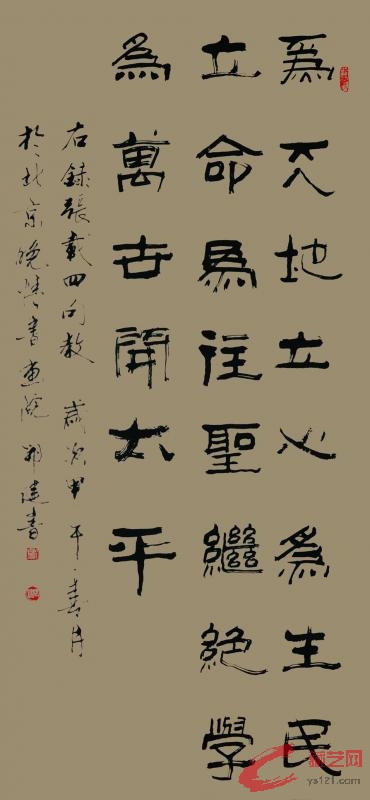 爲天地立心為生民
立命爲往聖繼絕學
為萬世開太平
右錄張載四句教 歲次甲午春月
於北京晚晴書畫院 書
艺网
ys121.com